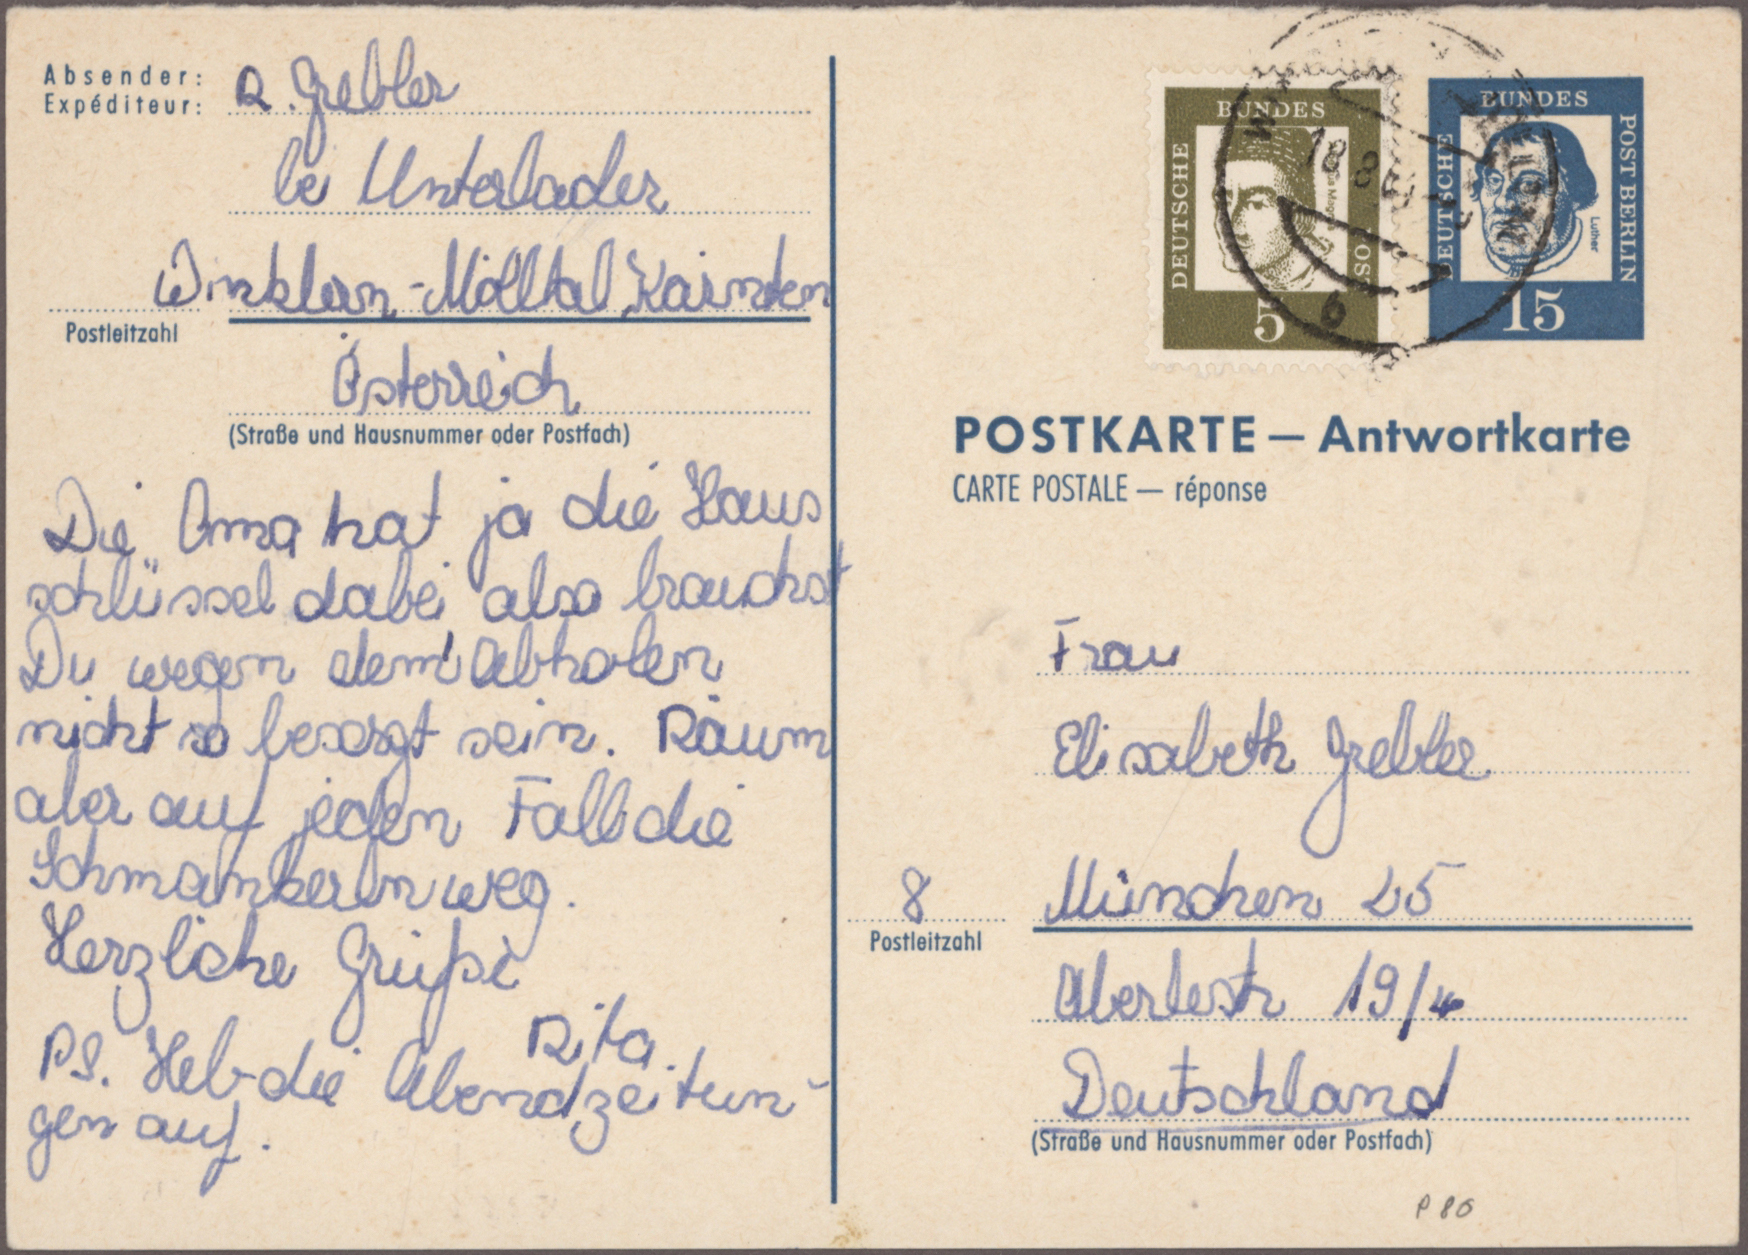 Absender:
Expéditeur:
R. Grebler
bei Unterlader
Winklern - Mölltal, Kärnten
Postleitzahl
Österreich
(Straße und Hausnummer oder Postfach)
Die Oma hat ja die Haus
schlüssel dabei also brauchst
Du wegen dem Abholen
nicht so besorgt sein. Räum
aber auf jeden Fall die
Schmankerln weg.
Herzliche Grüße
Rita
PS. Heb die Abendzeitun-
gen auf.
DEUTSCHE
BUNDES
POS
5
18.8.
b
DEUTSCHE
BUNDES
POST BERLIN
Luther
15
POSTKARTE — Antwortkarte
CARTE POSTALE — réponse
Frau
Elisabeth Grebler
8
München 25
Postleitzahl
19/4
Deutschland
(Straße und Hausnummer oder Postfach)
P 86